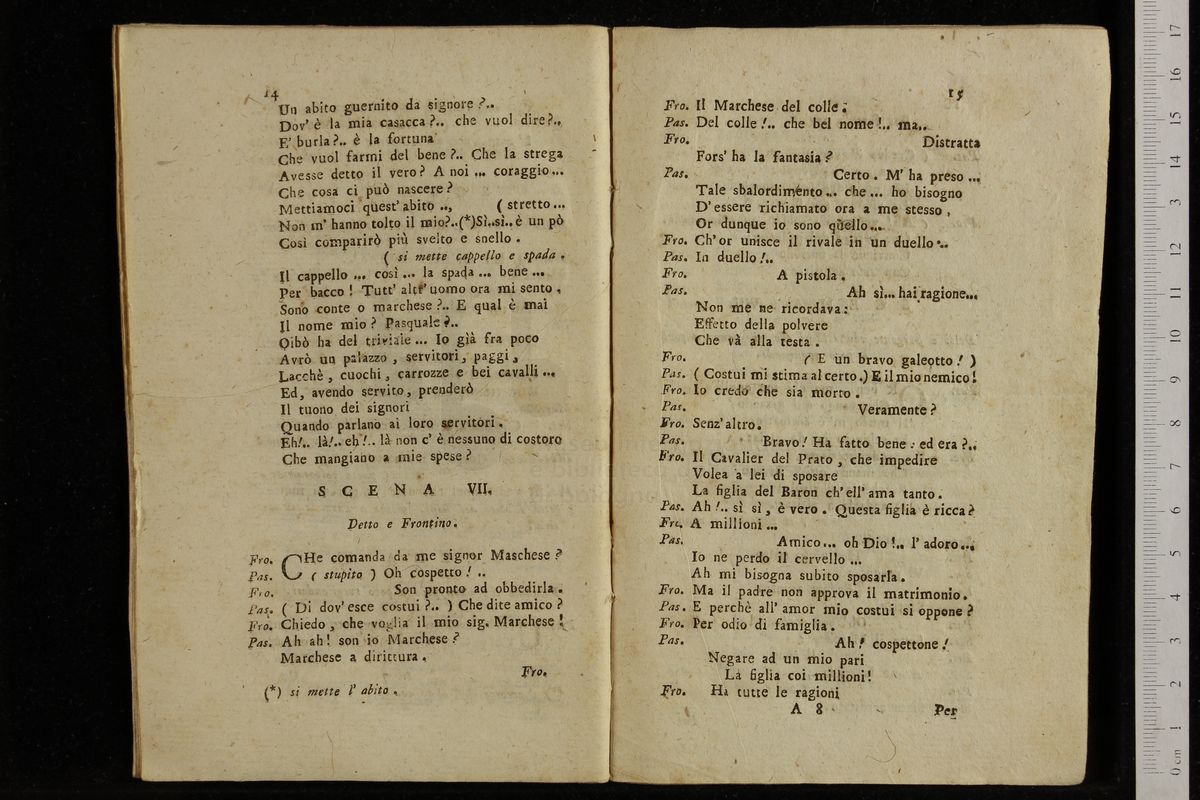 14
Un abito guernito da signore ?..
Dov' è la mia casacca ?.. che vuol dire?..
E' burla ?.. è la fortuna
Che vuol farmi del bene ?.. Che la strega
Avesse detto il vero ? A noi ... coraggio ...
Che cosa ci può nascere ?
Mettiamoci quest' abito .., ( stretto ...
Non m' hanno tolto il mio?..(*)Sì..sì.. è un pò
Così comparirò più svelto e snello .
( si mette cappello e spada .
Il cappello ... così ... la spada ... bene ...
Per bacco ! Tutt' altr' uomo ora mi sento ,
Sono conte o marchese ?.. E qual è mai
Il nome mio ? Pasquale ?..
Oibò ha del triviale ... Io già fra poco
Avrò un palazzo , servitori, paggi ,
Lacchè , cuochi , carrozze e bei cavalli ...
Ed, avendo servito, prenderò
Il tuono dei signori
Quando parlano ai loro servitori .
Eh!.. là!.. eh !.. là non c' è nessuno di costoro
Che mangiano a mie spese ?
SCENA VII.
Detto e Frontino.
Fro. CHe comanda da me signor Maschese ?
Pas. ( stupito ) Oh cospetto ! ..
Fro. Son pronto ad obbedirla .
Pas. ( Di dov' esce costui ?.. ) Che dite amico ?
Fro. Chiedo , che voglia il mio sig. Marchese !
Pas. Ah ah ! son io Marchese ?
Marchese a dirittura .
Fro.
(*) si mette l' abito .
15
Fro. Il Marchese del colle .
Pas. Del colle !.. che bel nome !.. ma..
Fro. Distratta
Fors' ha la fantasia ?
Pas. Certo . M' ha preso ...
Tale sbalordimento ... che ... ho bisogno
D' essere richiamato ora a me stesso ,
Or dunque io sono quello ...
Fro. Ch' or unisce il rivale in un duello ...
Pas. In duello !..
Fro. A pistola .
Pas. Ah sì... hai ragione...
Non me ne ricordava :
Effetto della polvere
Che và alla testa .
Fro. ( E un bravo galeotto ! )
Pas. ( Costui mi stima al certo .) E il mio nemico !
Fro. Io credo che sia morto .
Pas. Veramente ?
Fro. Senz' altro.
Pas. Bravo ! Ha fatto bene : ed era ?..
Fro. Il Cavalier del Prato , che impedire
Volea a lei di sposare
La figlia del Baron ch' ell' ama tanto .
Pas. Ah !.. sì sì , è vero . Questa figlia è ricca ?
Fro. A millioni ...
Pas. Amico ... oh Dio !.. l' adoro ...
Io ne perdo il cervello ...
Ah mi bisogna subito sposarla .
Fro. Ma il padre non approva il matrimonio .
Pas. E perchè all' amor mio costui si oppone ?
Fro. Per odio di famiglia .
Pas. Ah ! cospettone !
Negare ad un mio pari
La figlia coi millioni !
Fro. Ha tutte le ragioni
A 8 Per